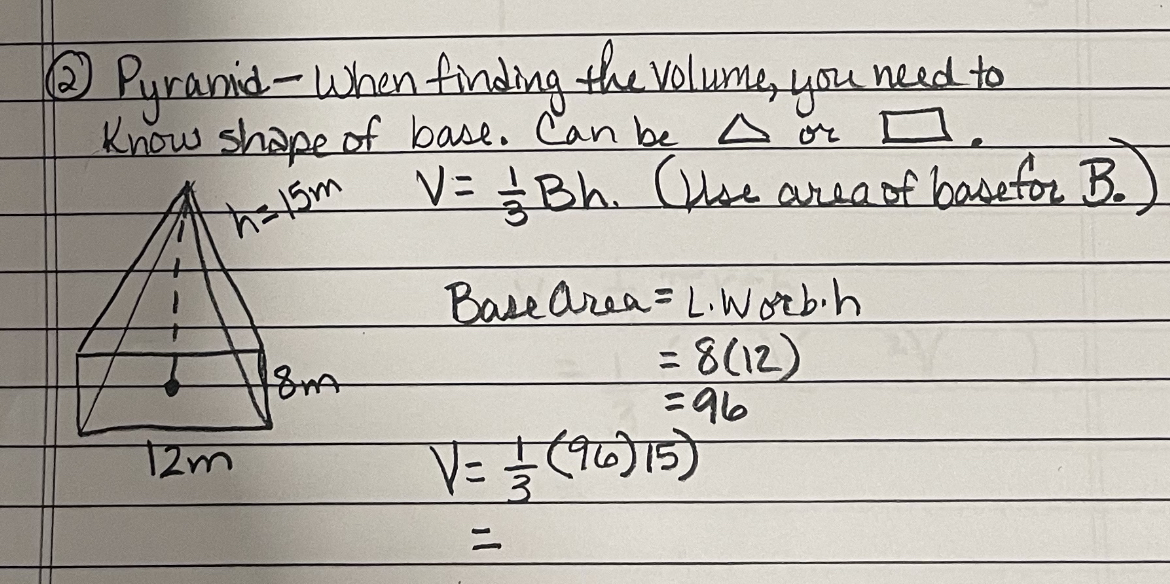 ② Pyramid - When finding the volume, you need to
know shape of base. Can be △ or ▭.
h=15m
V= 1/3 Bh. (Use area of base for B.)
Base Area = L.W or b.h
= 8(12)
8m
= 96
12m
V= 1/3 (96)15)
=